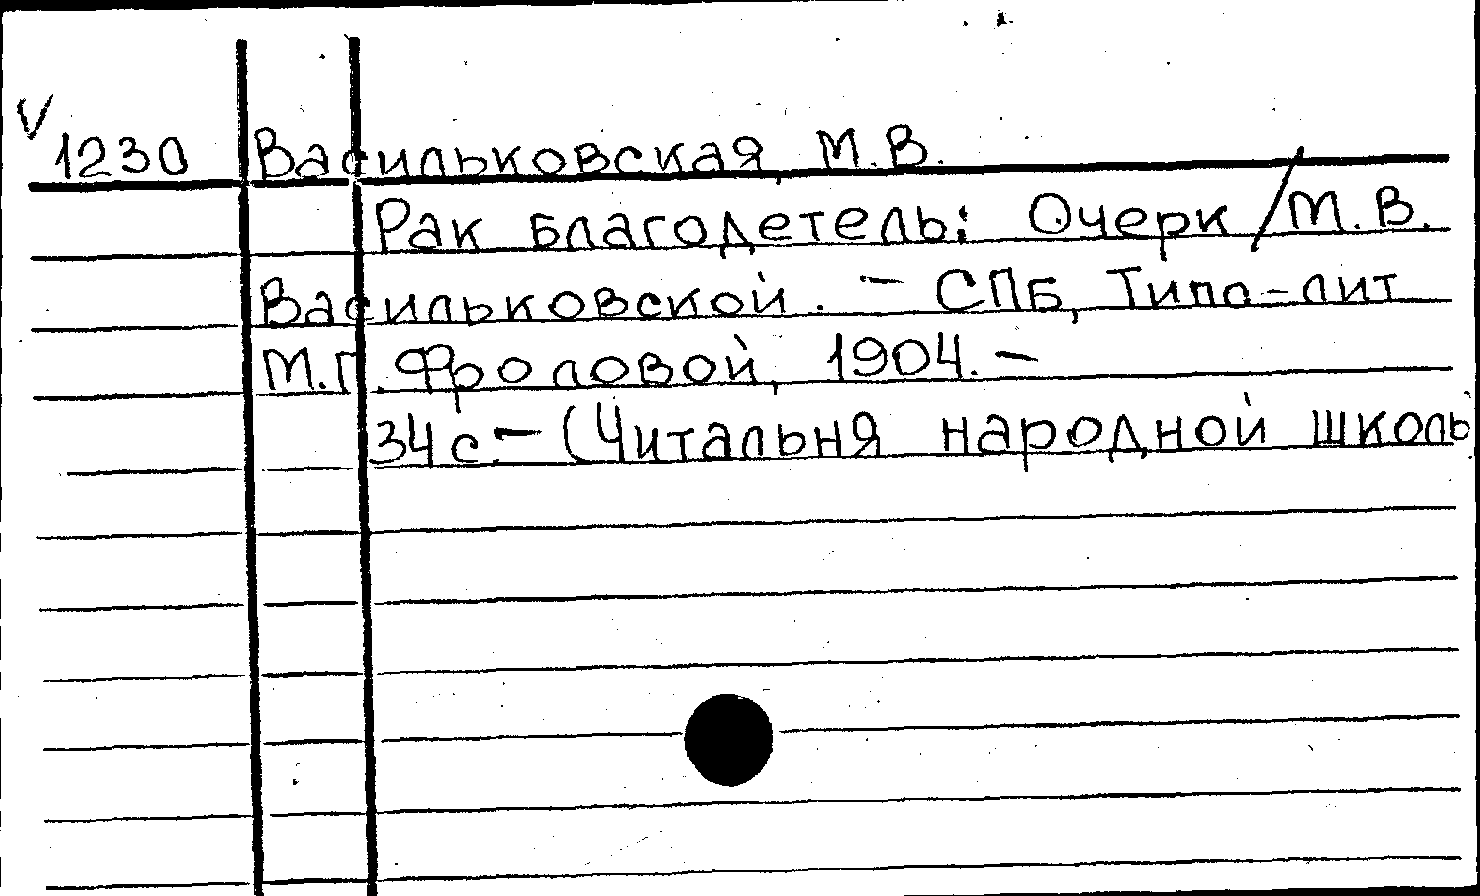 V
1230 Васильковская, М.В.
Рак благодетель: Очерк / М.В.
Васильковской. - СПб, Типо-лит
М.Г. Фроловой, 1904. -
34с. - (Читальня народной школь